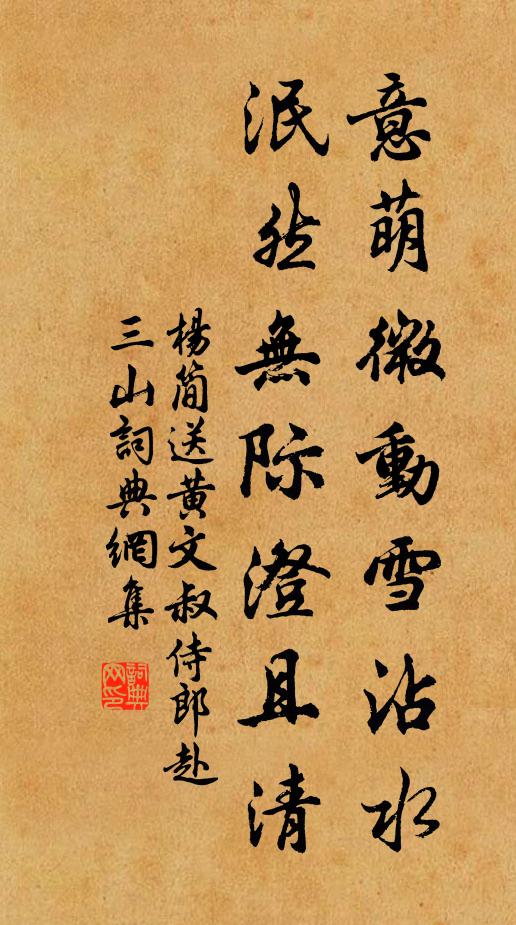 意萌微動雪沾水
泯然無际澄且清
楊简送黃文叔侍郎赴
三山詞典網集
詞典网印